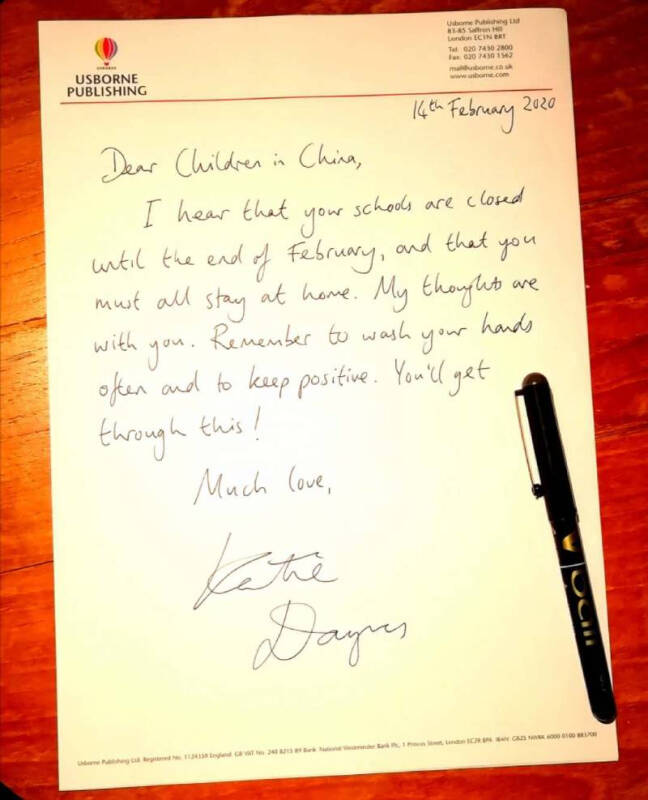 USBORNE
USBORNE
PUBLISHING
Usborne Publishing Ltd
83-85 Saffron Hill
London EC1N 8RT
Tel: 020 7430 2800
Fax: 020 7430 1562
mail@usborne.co.uk
www.usborne.com
14th February 2020
Dear Children in China,
I hear that your schools are closed
until the end of February, and that you
must all stay at home. My thoughts are
with you. Remember to wash your hands
often and to keep positive. You'll get
through this!
Much love,
Katie
Daynes
Usborne Publishing Ltd. Registered No. 1124359 England. GB VAT No. 240 8215 89 Bank: National Westminster Bank Plc, 1 Princes Street, London EC2R 8PA. IBAN: GB25 NWBK 6000 0100 883700